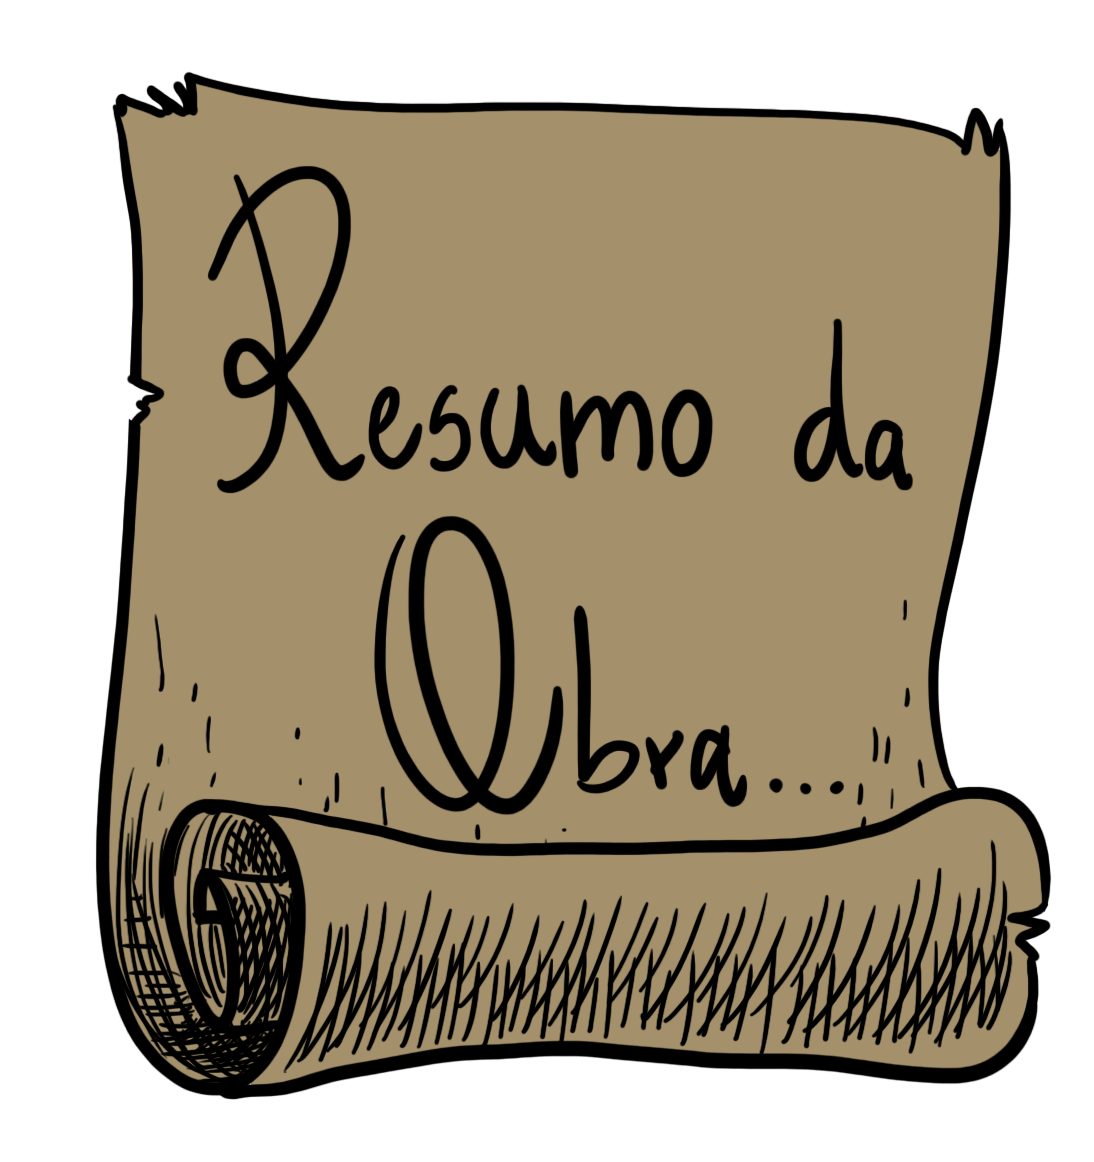 Resumo da
Obra...